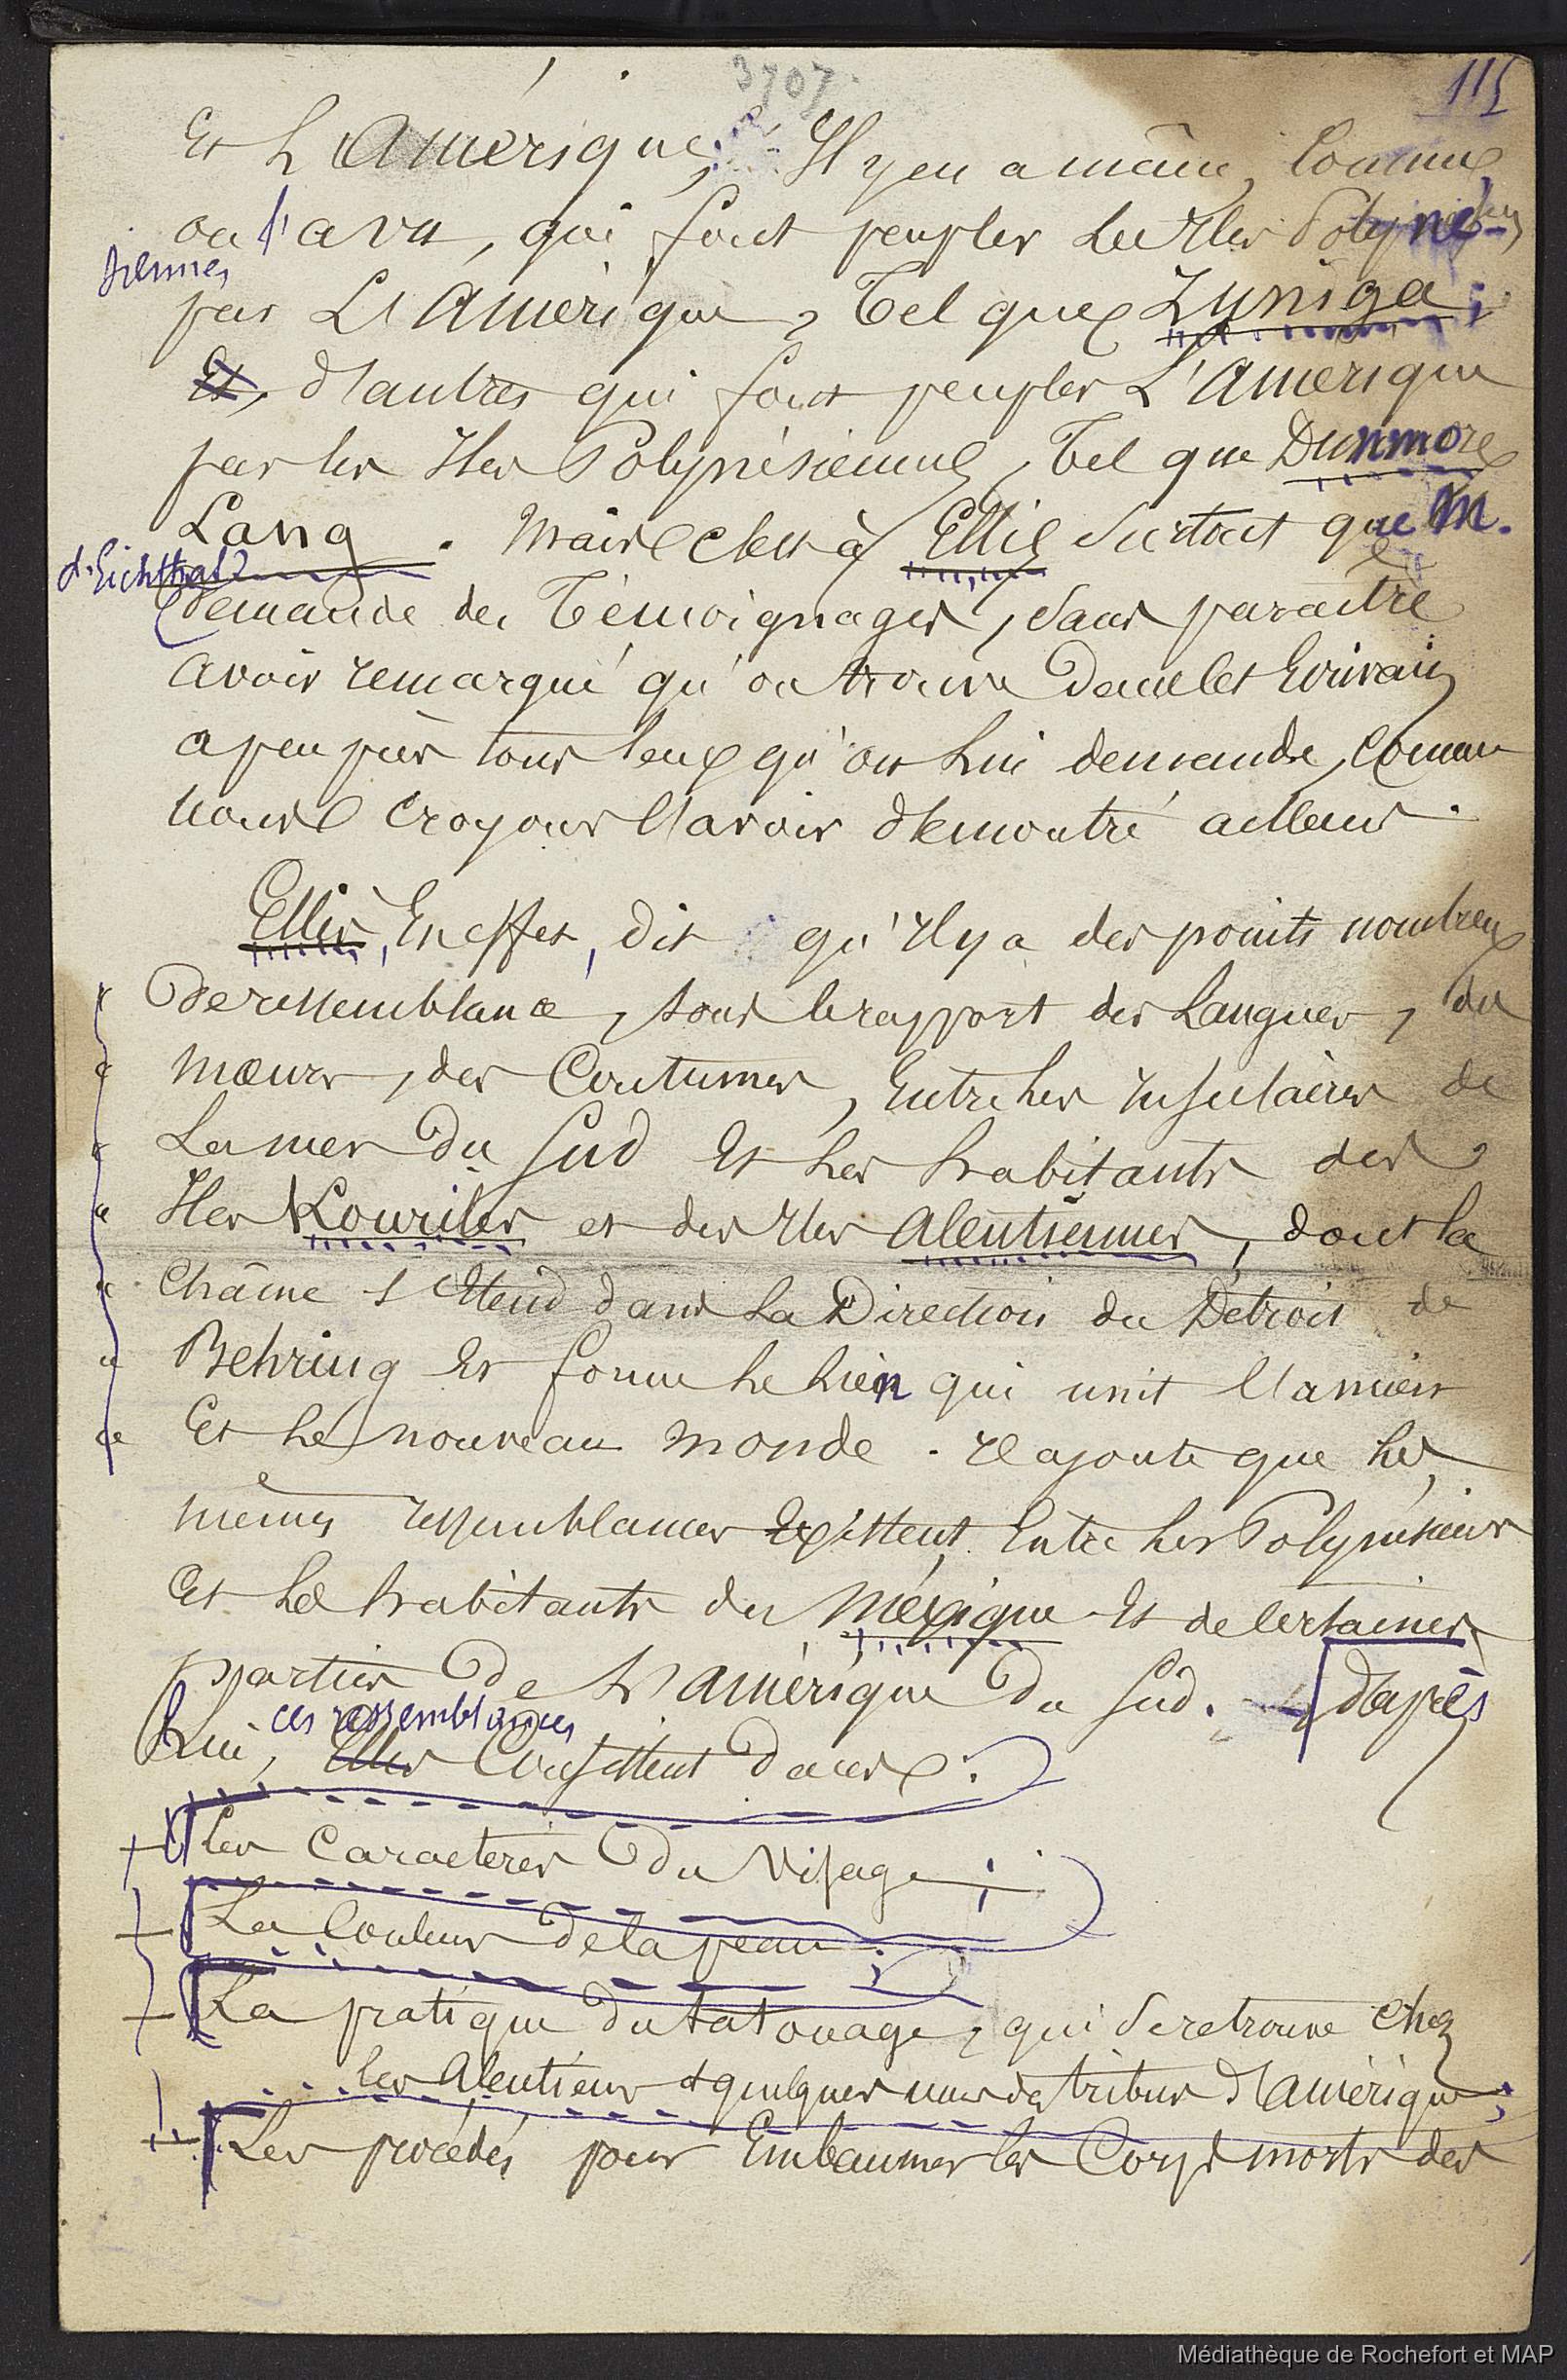 3707.
115
Et L'Amérique; Il y en a même, Comme
on l'a vu, qui font peupler Les Iles Polyné-
siennes
par L'Amérique, Tel que Zuniga;
Et, d'autres qui font peupler L'Amérique
par les Iles Polynésiennes, Tel que Dunmore
Lang. Mais c'est à Ellis surtout que M.
d'Eichthal
demande des Témoignages, sans paraître
avoir remarqué qu'on trouve dans cet Ecrivain
a peu près tous ceux qu'on Lui demande, Comme
nous croyons l'avoir démontré ailleurs.
Ellis, En effet, dit qu'Il y a des points nombreux
De ressemblance, sous le rapport des Langues, des
mœurs, des Coutumes, Entre Les Insulaires de
La mer Du Sud Et Les habitants des
Iles Kouriles et des Iles Aleutiennes, dont la
Chaîne s'Etend dans La Direction du Détroit de
Behring Et forme Le Lien qui unit l'ancien
Et Le nouveau monde. Il ajoute que Les
mêmes ressemblances Existent Entre Les Polynésiens
Et Les habitants du Méxique Et de Certaines
parties De L'Amérique Du Sud. D'après
Lui, ces ressemblances
Elles Consistent Dans:
Les Caractères Du Visage;
La Couleur De la peau;
La pratique Du tatouage, qui se retrouve Chez
les Aleutiens & quelques unes des tribus d'Amérique;
Les procédés pour Embaumer les Corps morts des
Médiathèque de Rochefort et MAP